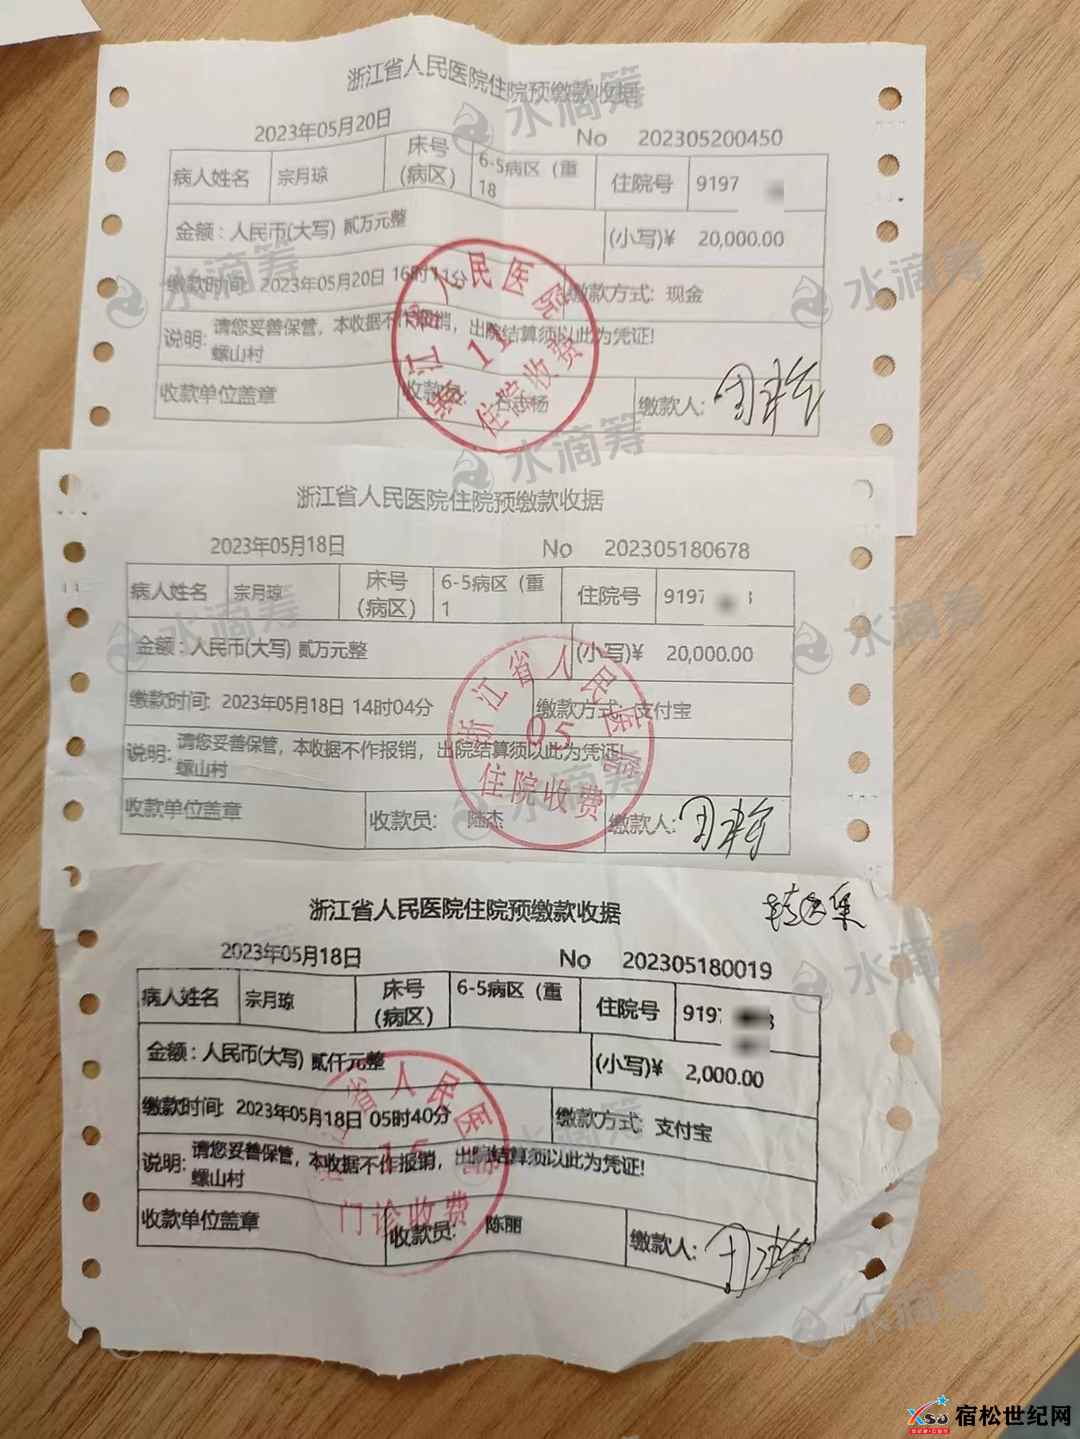 浙江省人民医院住院预缴款收据
2023年05月20日 No 202305200450
病人姓名 宗月琼 床号(病区) 6-5病区（重18 住院号 9197
金额：人民币(大写) 贰万元整 (小写)¥ 20,000.00
缴款时间: 2023年05月20日 16时11分 缴款方式: 现金
说明: 请您妥善保管，本收据不作报销，出院结算须以此为凭证!
螺山村
收款单位盖章 收款员: 缴款人:
浙江省人民医院
11
住院收费
浙江省人民医院住院预缴款收据
2023年05月18日 No 202305180678
病人姓名 宗月琼 床号(病区) 6-5病区（重1 住院号 9197
金额：人民币(大写) 贰万元整 (小写)¥ 20,000.00
缴款时间: 2023年05月18日 14时04分 缴款方式: 支付宝
说明: 请您妥善保管，本收据不作报销，出院结算须以此为凭证!
螺山村
收款单位盖章 收款员: 陆杰 缴款人:
浙江省人民医院
05
住院收费
浙江省人民医院住院预缴款收据
2023年05月18日 No 202305180019
病人姓名 宗月琼 床号(病区) 6-5病区（重 住院号 9197
金额：人民币(大写) 贰仟元整 (小写)¥ 2,000.00
缴款时间: 2023年05月18日 05时40分 缴款方式: 支付宝
说明: 请您妥善保管，本收据不作报销，出院结算须以此为凭证!
螺山村
收款单位盖章 收款员: 陈丽 缴款人:
浙江省人民医院
15
门诊收费
水滴筹
水滴筹
水滴筹
水滴筹
水滴筹
水滴筹
水滴筹
水滴筹
宿松世纪网